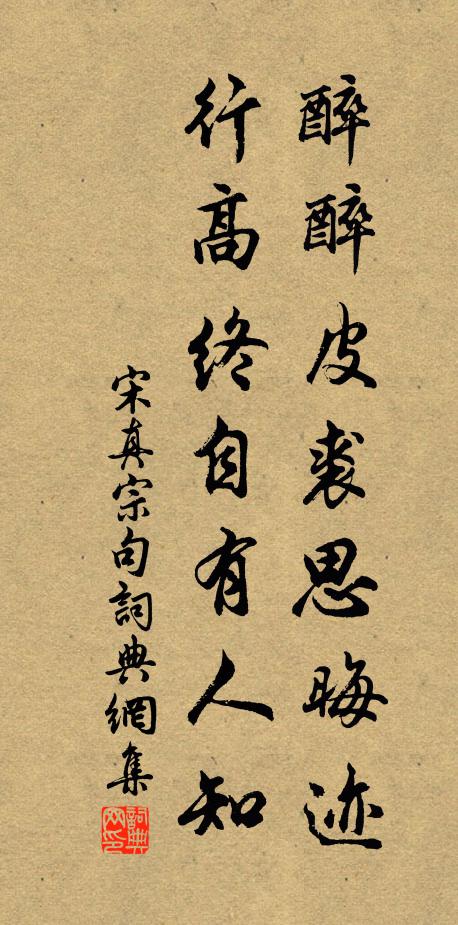 醉醉皮裘思晦迹
行高终自有人知
宋真宗句詞典網集
詞典网印